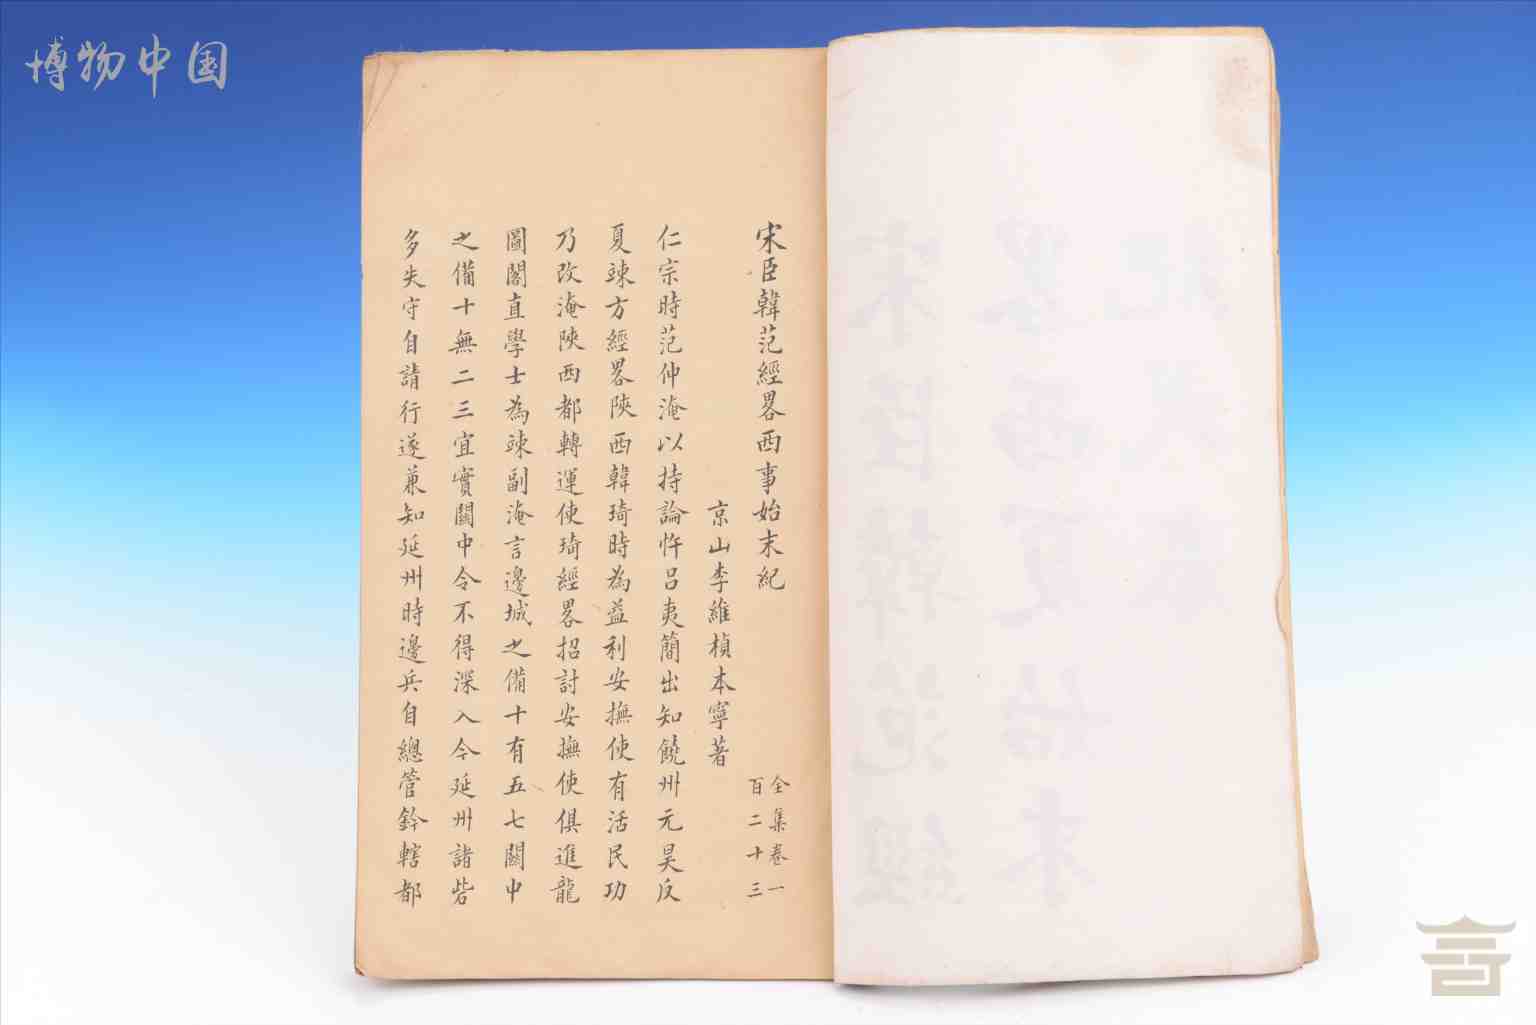 博物中国
宋臣韓范經畧西事始末紀
全集卷一
百二十三
京山李維楨本寧著
仁宗時范仲淹以持論忤呂夷簡出知饒州元昊反
夏竦方經畧陝西韓琦時為益利安撫使有活民功
乃改淹陝西都轉運使琦經畧招討安撫使俱進龍
圖閣直學士為竦副淹言邊城之備十有五七關中
之備十無二三宜實關中令不得深入今延州諸砦
多失守自請行遂兼知延州時邊兵自總管鈐轄都